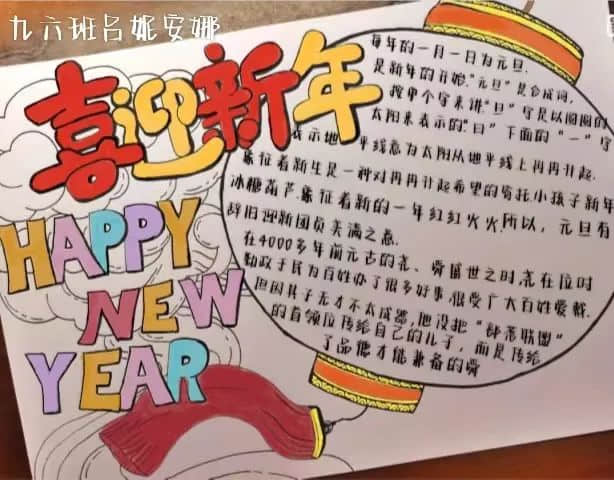 九六班吕妮安娜
喜迎新年
HAPPY
NEW
YEAR
每年的一月一日为元旦.
是新年的开始."元旦"是合成词,
按单个字来讲"旦"字是以圆圆的
太阳来表示的."日"下面的"一"字
表示地平线意为太阳从地平线上冉冉升起.
象征着新生是一种对冉冉升起希望的寄托小孩子新年
冰糖葫芦象征着新的一年红红火火.所以，元旦有
辞旧迎新团员美满之意.
在4000多年前元古的尧、舜盛世之时,尧在位时
勤政于民为百姓办了很多好事.很受广大百姓爱戴.
但因其子无才不太成器,他没把"部落联盟"
的首领位传给自己的儿子，而是传给
了品德才能兼备的舜